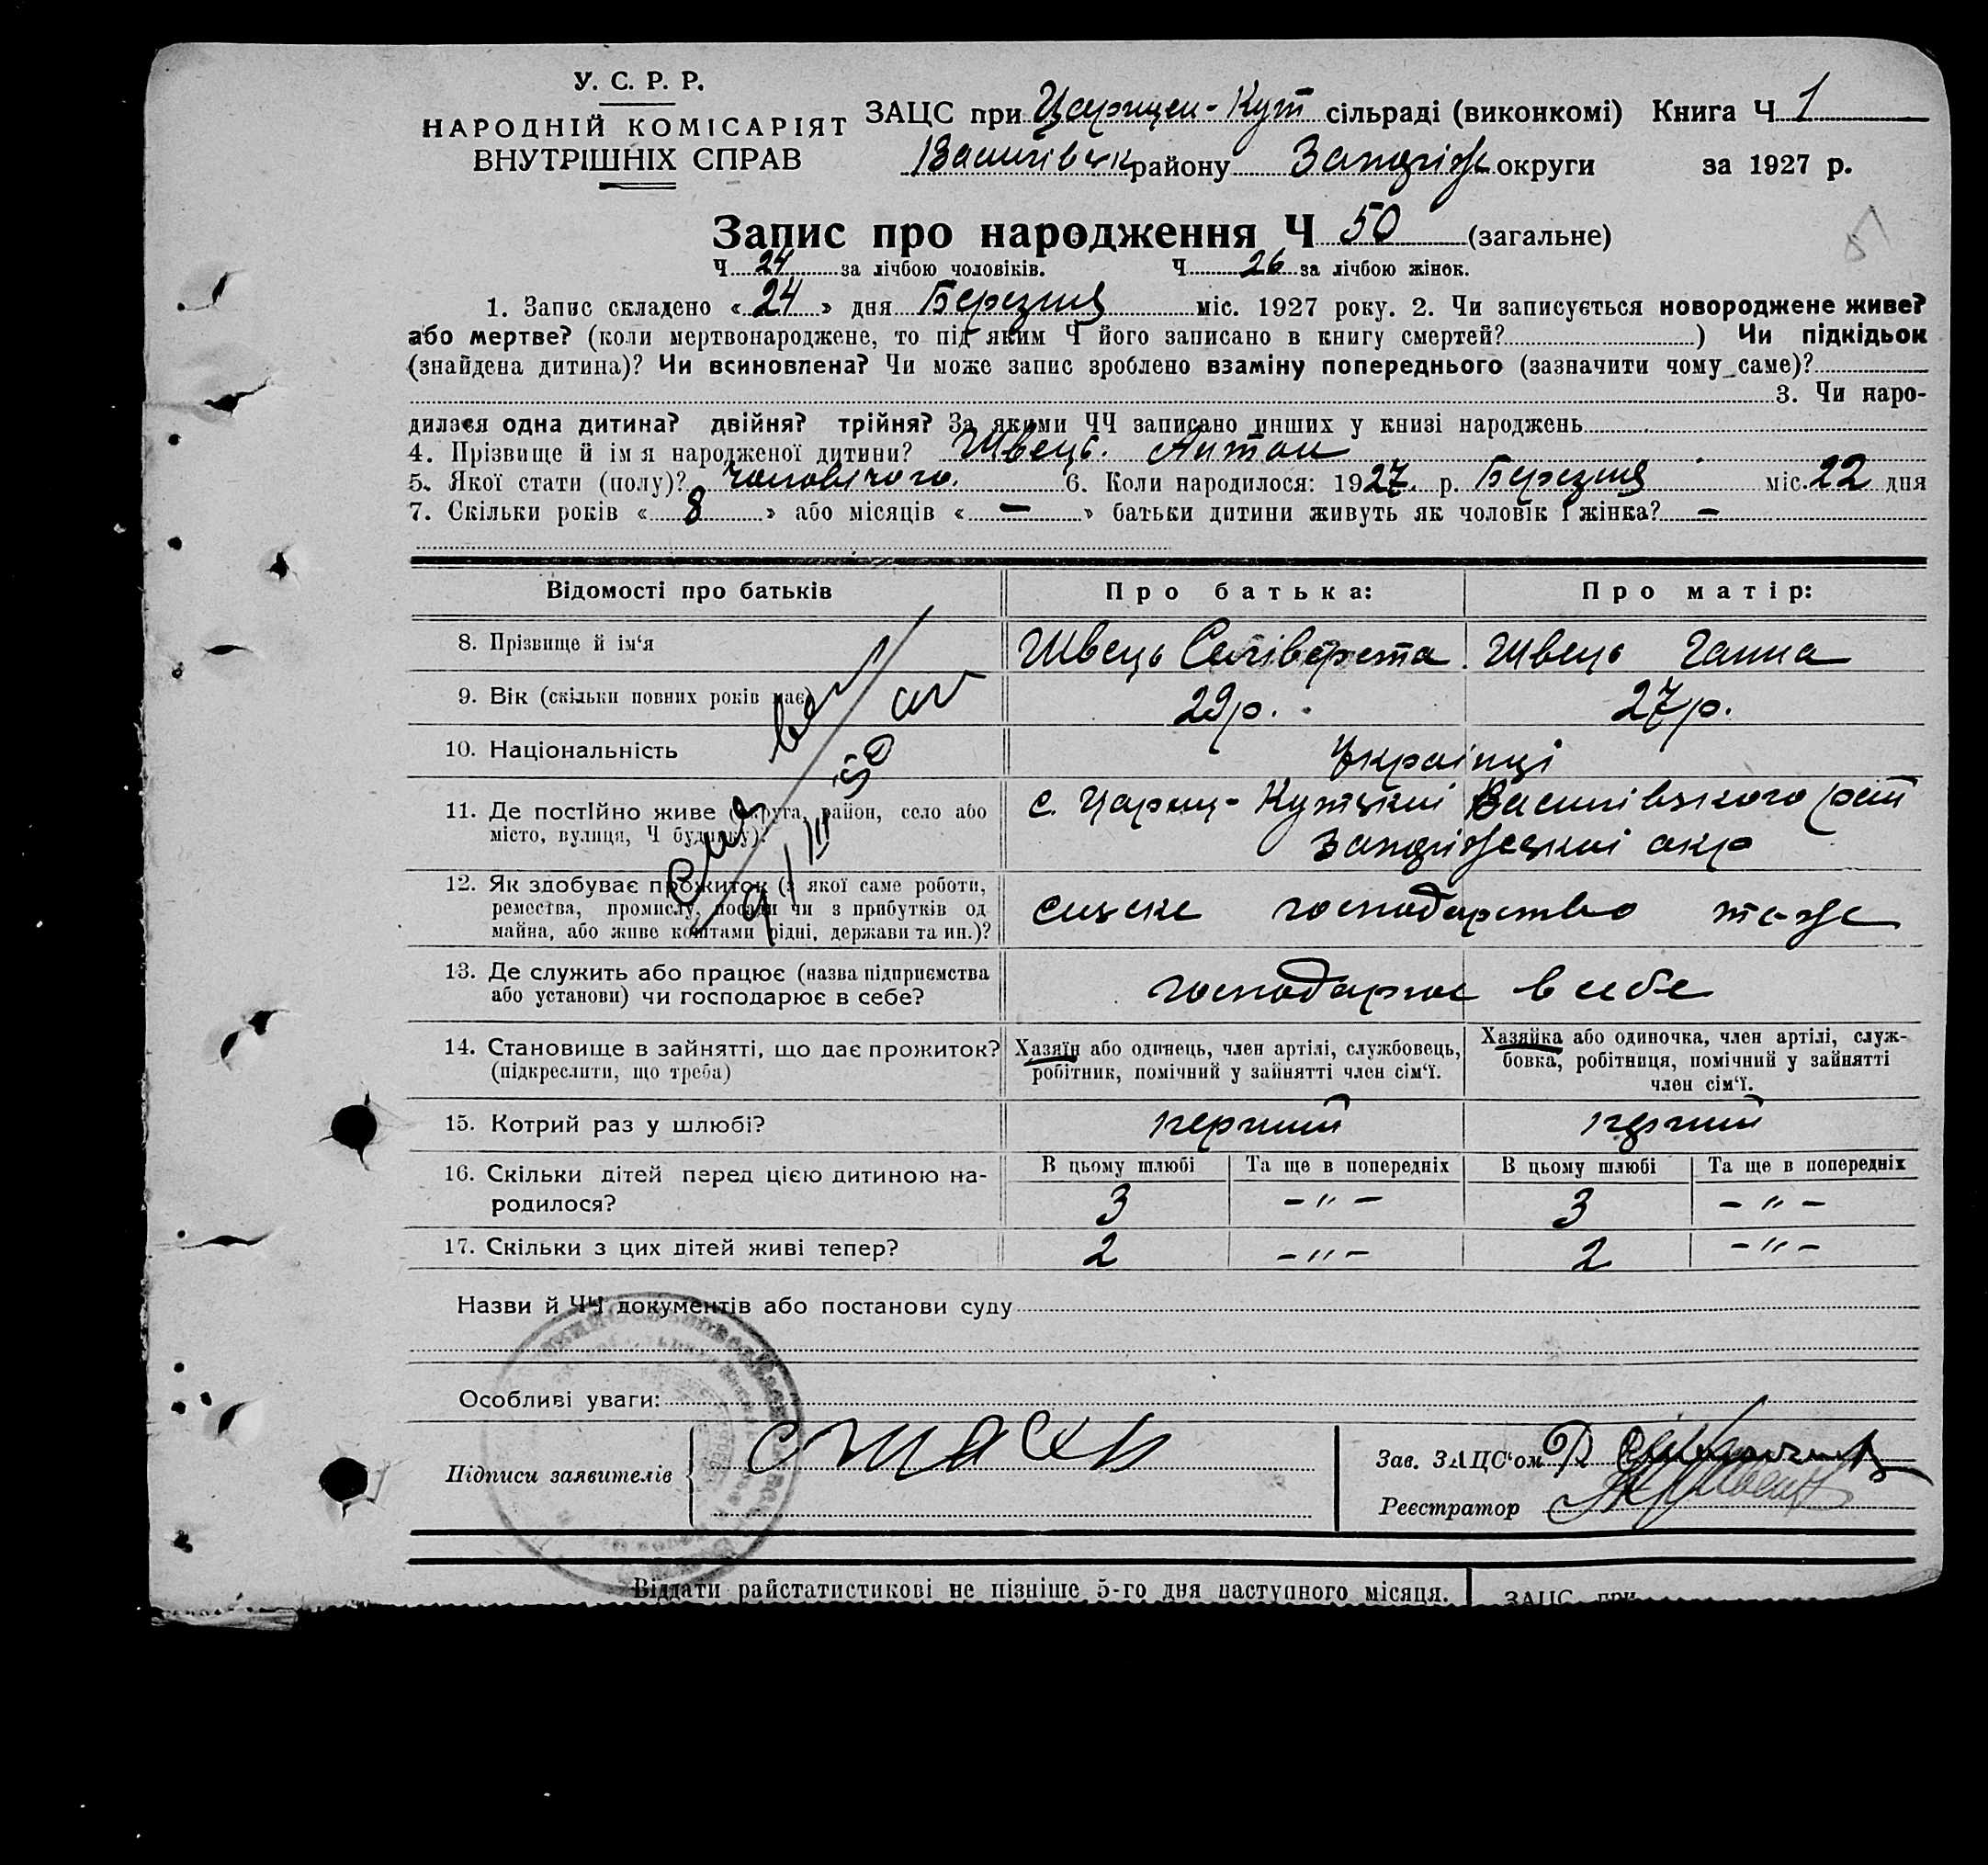 У. С. Р. Р.
НАРОДНІЙ КОМІСАРІЯТ
ВНУТРІШНІХ СПРАВ
ЗАЦС при Царицен-Кут сільраді (виконкомі) Книга Ч 1
Василівськ району Запоріж округи за 1927 р.
Запис про народження Ч 50 (загальне)
Ч 24 за лічбою чоловіків. Ч 26 за лічбою жінок.
1. Запис складено « 24 » дня Березня міс. 1927 року. 2. Чи записується новороджене живе?
або мертве? (коли мертвонароджене, то під яким Ч його записано в книгу смертей? ) Чи підкідьок
(знайдена дитина)? Чи всиновлена? Чи може запис зроблено взаміну попереднього (зазначити чому саме)?
3. Чи наро-
дилася одна дитина? двійня? трійня? За якими ЧЧ записано инших у книзі народжень
4. Прізвище й ім я народженої дитини? Швець. Антон
5. Якої стати (полу)? чоловічого. 6. Коли народилося: 1927. р. Березня міс. 22 дня
7. Скільки років « 8 » або місяців « — » батьки дитини живуть як чоловік і жінка? —
Відомості про батьків Про батька: Про матір:
8. Прізвище й ім'я Швець Селіверста. Швець Ганна
9. Вік (скільки повних років має) 29 р. 27 р.
10. Національність Українці
11. Де постійно живе (округа, район, село або с. Цариц-Кутської Василівського рай
місто, вулиця, Ч будинку)? Запоріжської окр
12. Як здобуває прожиток (з якої саме роботи,
ремества, промислу, посади чи з прибутків од сильске господарство те-ж
майна, або живе коштами рідні, держави та ин.)?
13. Де служить або працює (назва підприємства
або установи) чи господарює в себе? господарює в себе
14. Становище в зайнятті, що дає прожиток? Хазяїн або одинець, член артілі, службовець, Хазяйка або одиночка, член артілі, служ-
(підкреслити, що треба) робітник, помічний у зайнятті член сім'ї. бовка, робітниця, помічний у зайнятті
член сім'ї.
15. Котрий раз у шлюбі? перший перший
16. Скільки дітей перед цією дитиною на- В цьому шлюбі Та ще в попередніх В цьому шлюбі Та ще в попередніх
родилося? 3 – " – 3 – " –
17. Скільки з цих дітей живі тепер? 2 – " – 2 – " –
Назви й ЧЧ документів або постанови суду
Особливі уваги:
Підписи заявителів
Зав. ЗАЦС'ом
Реєстратор
Віддати райстатистикові не пізніше 5-го дня наступного місяця. ЗАЦС при